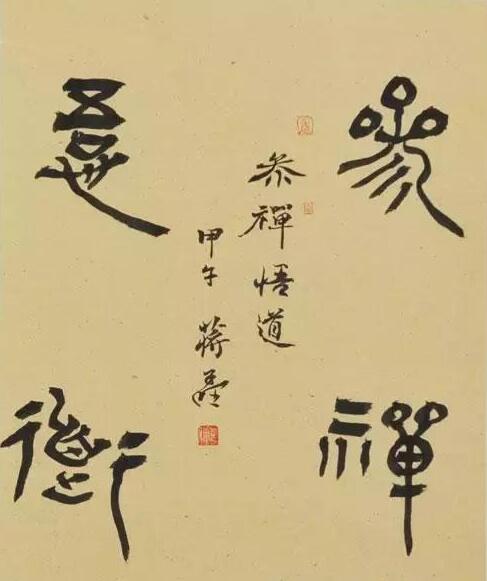 參禪
悟道
參禪悟道
甲午 蔣